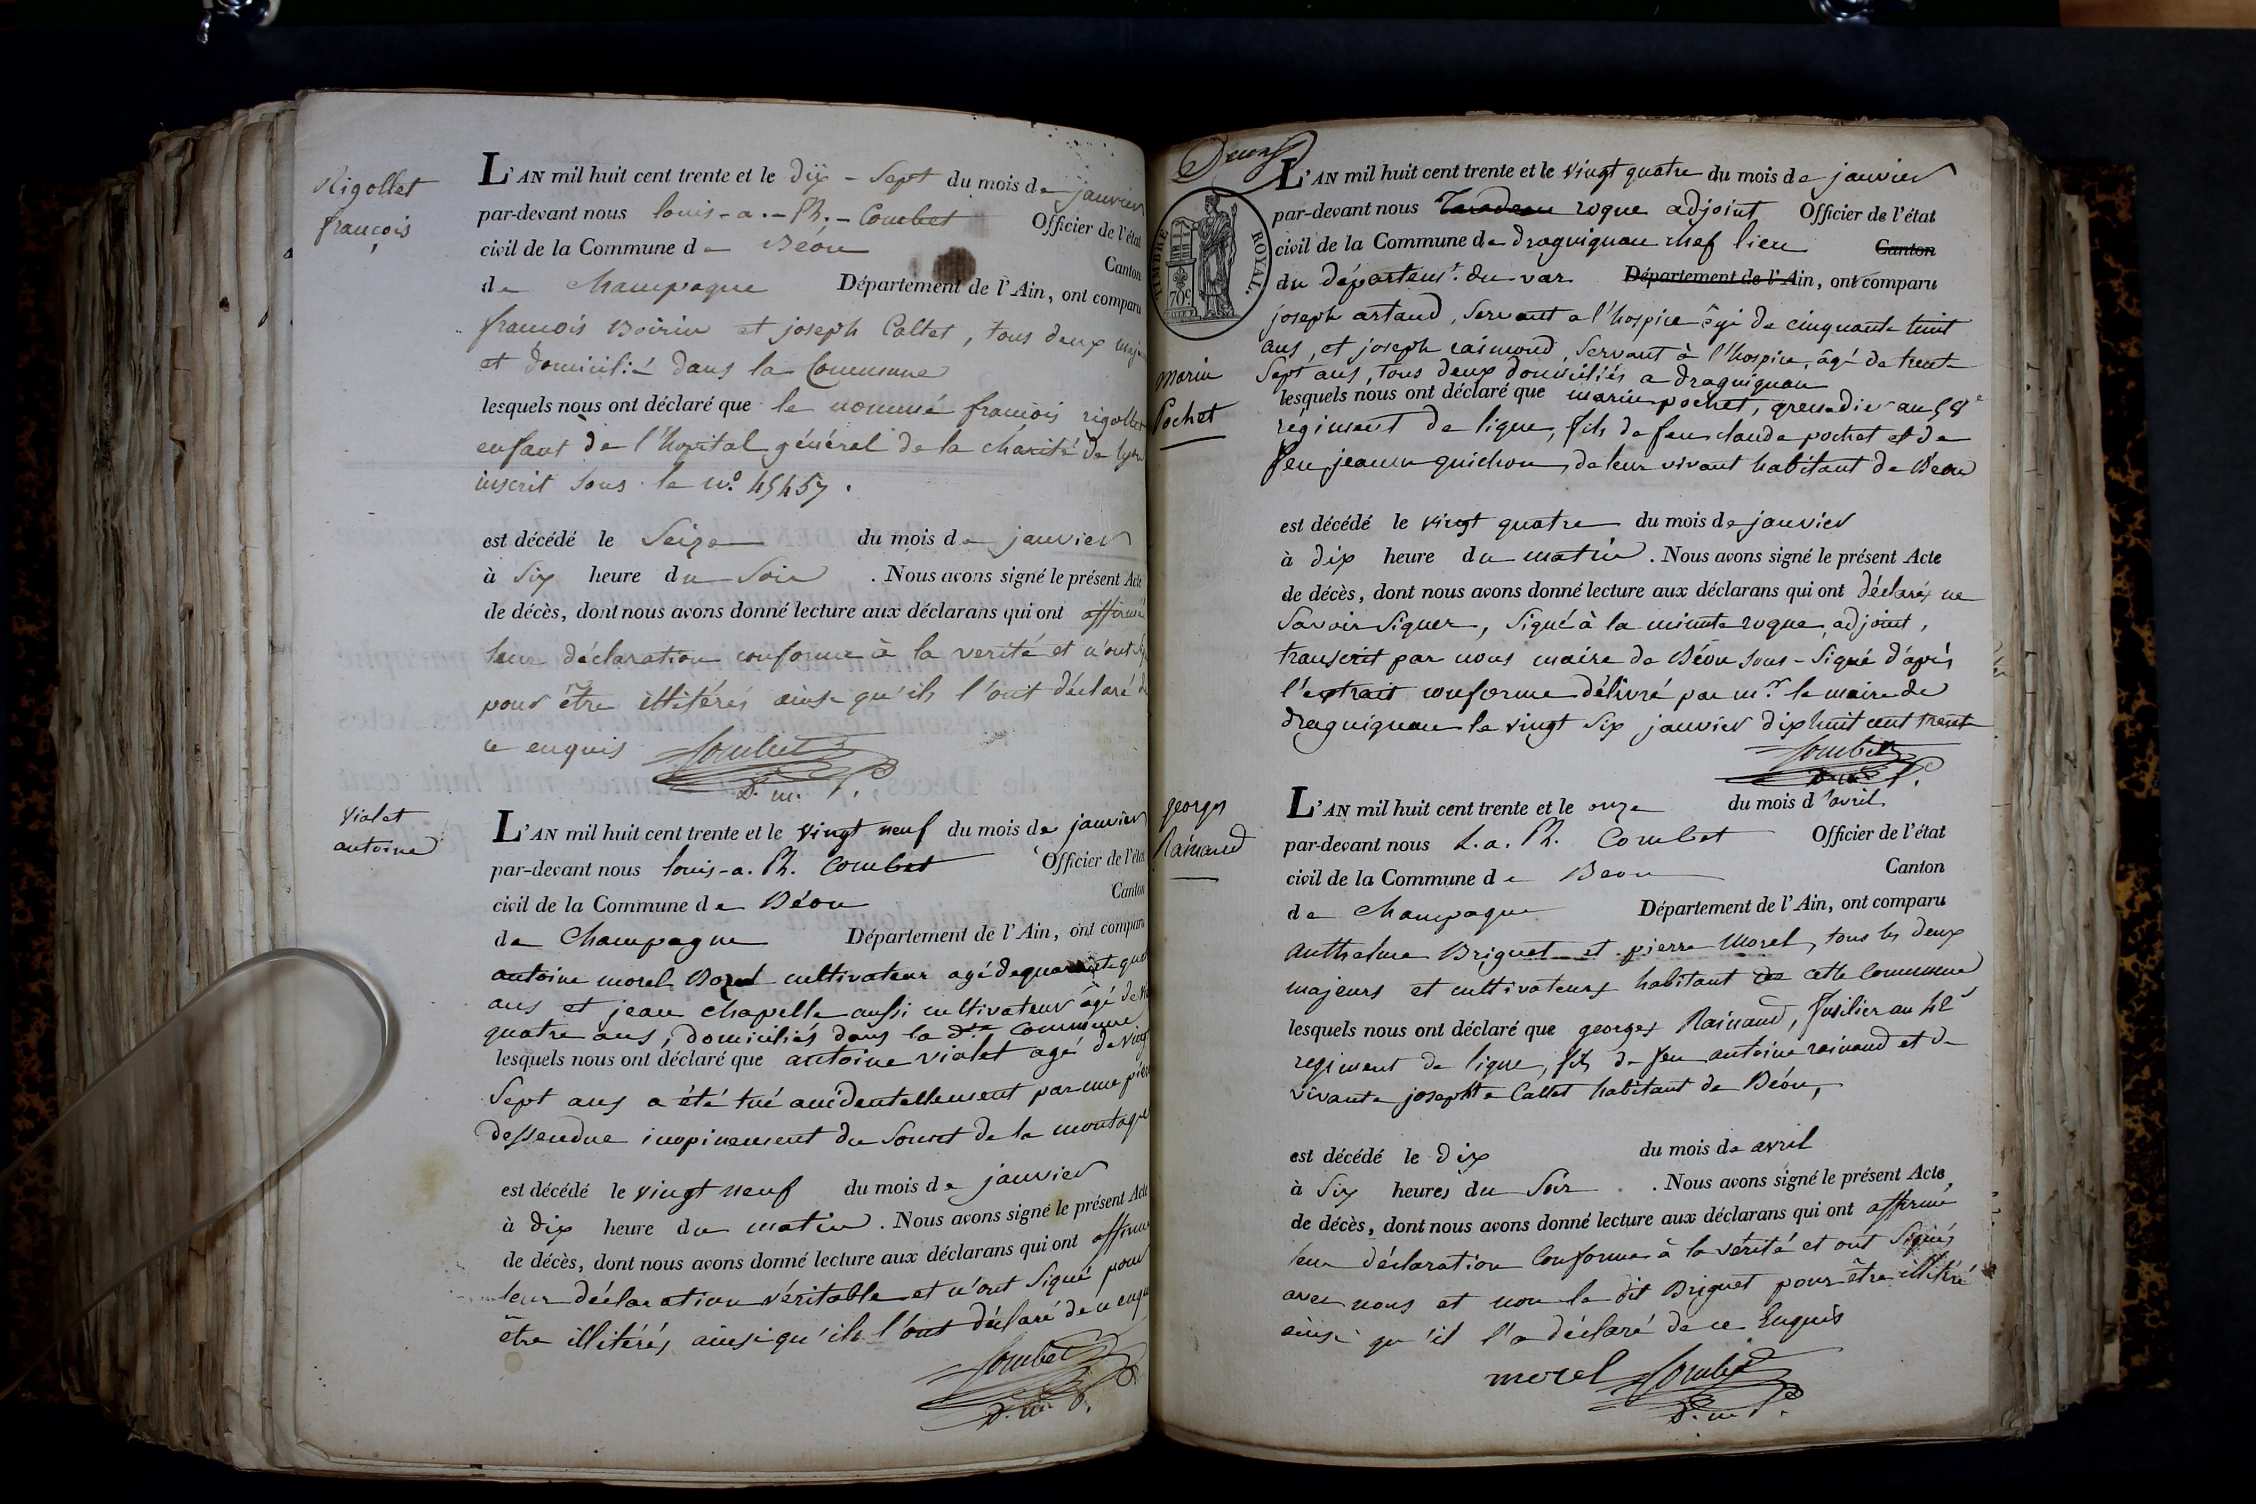 Rigollet
françois
L'AN mil huit cent trente et le dix-sept du mois de janvier
par-devant nous louis-a.-Ph.-Combet Officier de l'état
civil de la Commune de Béon Canton
de Champagne Département de l'Ain, ont comparu
françois Boirin et joseph Caltet, tous deux
et domicilié dans la Commune
lesquels nous ont déclaré que le nommé françois rigollet
enfant de l'hopital général de la charité de lyon
inscrit sous le N.° 45457.
est décédé le Seize du mois de janvier
à Six heure du Soir. Nous avons signé le présent Acte
de décès, dont nous avons donné lecture aux déclarans qui ont affirmé
leur déclaration conforme à la verité et n'ont
pour être illitérés ainsi qu'ils l'ont déclaré de
ce enquis Combet
D. m. P.
Violet
antoine
L'AN mil huit cent trente et le vingt neuf du mois de janvier
par-devant nous louis-a. Ph. Combet Officier de l'état
civil de la Commune de Béon Canton
de Champagne Département de l'Ain, ont comparu
antoine morel cultivateur agé de quarante
ans et jean chapelle aussi cultivateur âgé de
quatre ans, domiciliés dans la dte Commune
lesquels nous ont déclaré que antoine violet agé de vingt
Sept ans a été tué accidentellement par une pierre
dessendue inopinement du Somet de la montagne
est décédé le vingt neuf du mois de janvier
à dix heure du matin. Nous avons signé le présent Acte
de décès, dont nous avons donné lecture aux déclarans qui ont affirmé
leur déclaration véritable et n'ont signé pour
être illitérés ainsi qu'ils l'ont déclaré de ce enquis
Combet
D. m. P.
TIMBRE ROYAL.
70c.
marin
Pochet
L'AN mil huit cent trente et le vingt quatre du mois de janvier
par-devant nous roque adjoint Officier de l'état
civil de la Commune de draguignan chef lieu Canton
du départemt. du var Département de l'Ain, ont comparu
joseph artaud, servant a l'hospice âgé de cinquante huit
ans, et joseph raimond, servant à l'hospice, âgé de trente
Sept ans, tous deux domiciliés a draguignan
lesquels nous ont déclaré que marin pochet, grenadier au 58e
régiment de ligne, fils de feu claude pochet et de
feu jeanne guichon, de leur vivant habitant de Béon
est décédé le vingt quatre du mois de janvier
à dix heure du matin. Nous avons signé le présent Acte
de décès, dont nous avons donné lecture aux déclarans qui ont déclarés ne
Savoir Signer, Signé à la minute roque, adjoint,
transcrit par nous maire de Béon sous-signé d'après
l'extrait conforme délivré par mr. le maire de
draguignan le vingt Six janvier dix huit cent trente
Combet
D. m. P.
georges
Rainaud
L'AN mil huit cent trente et le onze du mois d'avril
par-devant nous L. a. Ph. Combet Officier de l'état
civil de la Commune de Beon Canton
de Champagne Département de l'Ain, ont comparu
anthelme Briguet et pierre Morel, tous les deux
majeurs et cultivateurs habitant de cette Commune
lesquels nous ont déclaré que georges Rainaud, fusilier au 42e
regiment de ligne, fils de feu antoine rainaud et de
vivante josephte Caltet habitant de Béon,
est décédé le dix du mois de avril
à Six heures du Soir. Nous avons signé le présent Acte
de décès, dont nous avons donné lecture aux déclarans qui ont affirmé
leur déclaration conforme à la vérité et ont signés
avec nous et non le dit Briguet pour être illitéré
ainsi qu'il l'a déclaré de ce Enquis
morel Combet
D. m. P.